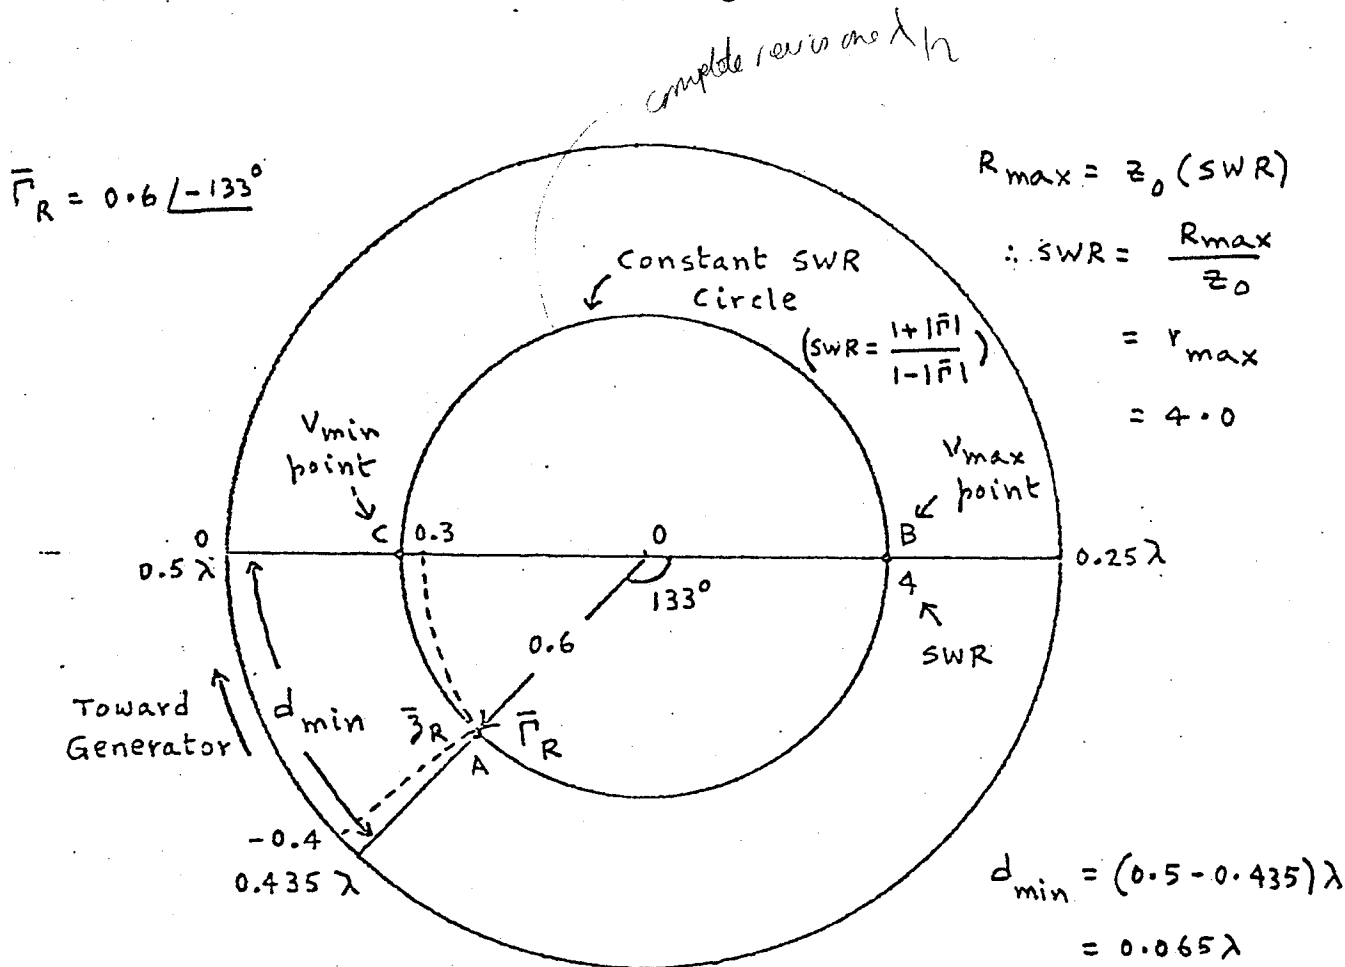 complete rev is one λ/2
Γ̄_R = 0.6 /-133°
R_max = Z_0 (SWR)
∴ SWR = R_max / Z_0
= r_max
= 4.0
Constant SWR
Circle
(SWR = 1+|Γ̄| / 1-|Γ̄|)
V_min
point
V_max
point
C 0.3 0 B
0
0.5 λ
0.25 λ
133°
4
0.6
SWR
Toward
Generator
d_min
z̄_R Γ̄_R
A
-0.4
0.435 λ
d_min = (0.5 - 0.435) λ
= 0.065 λ